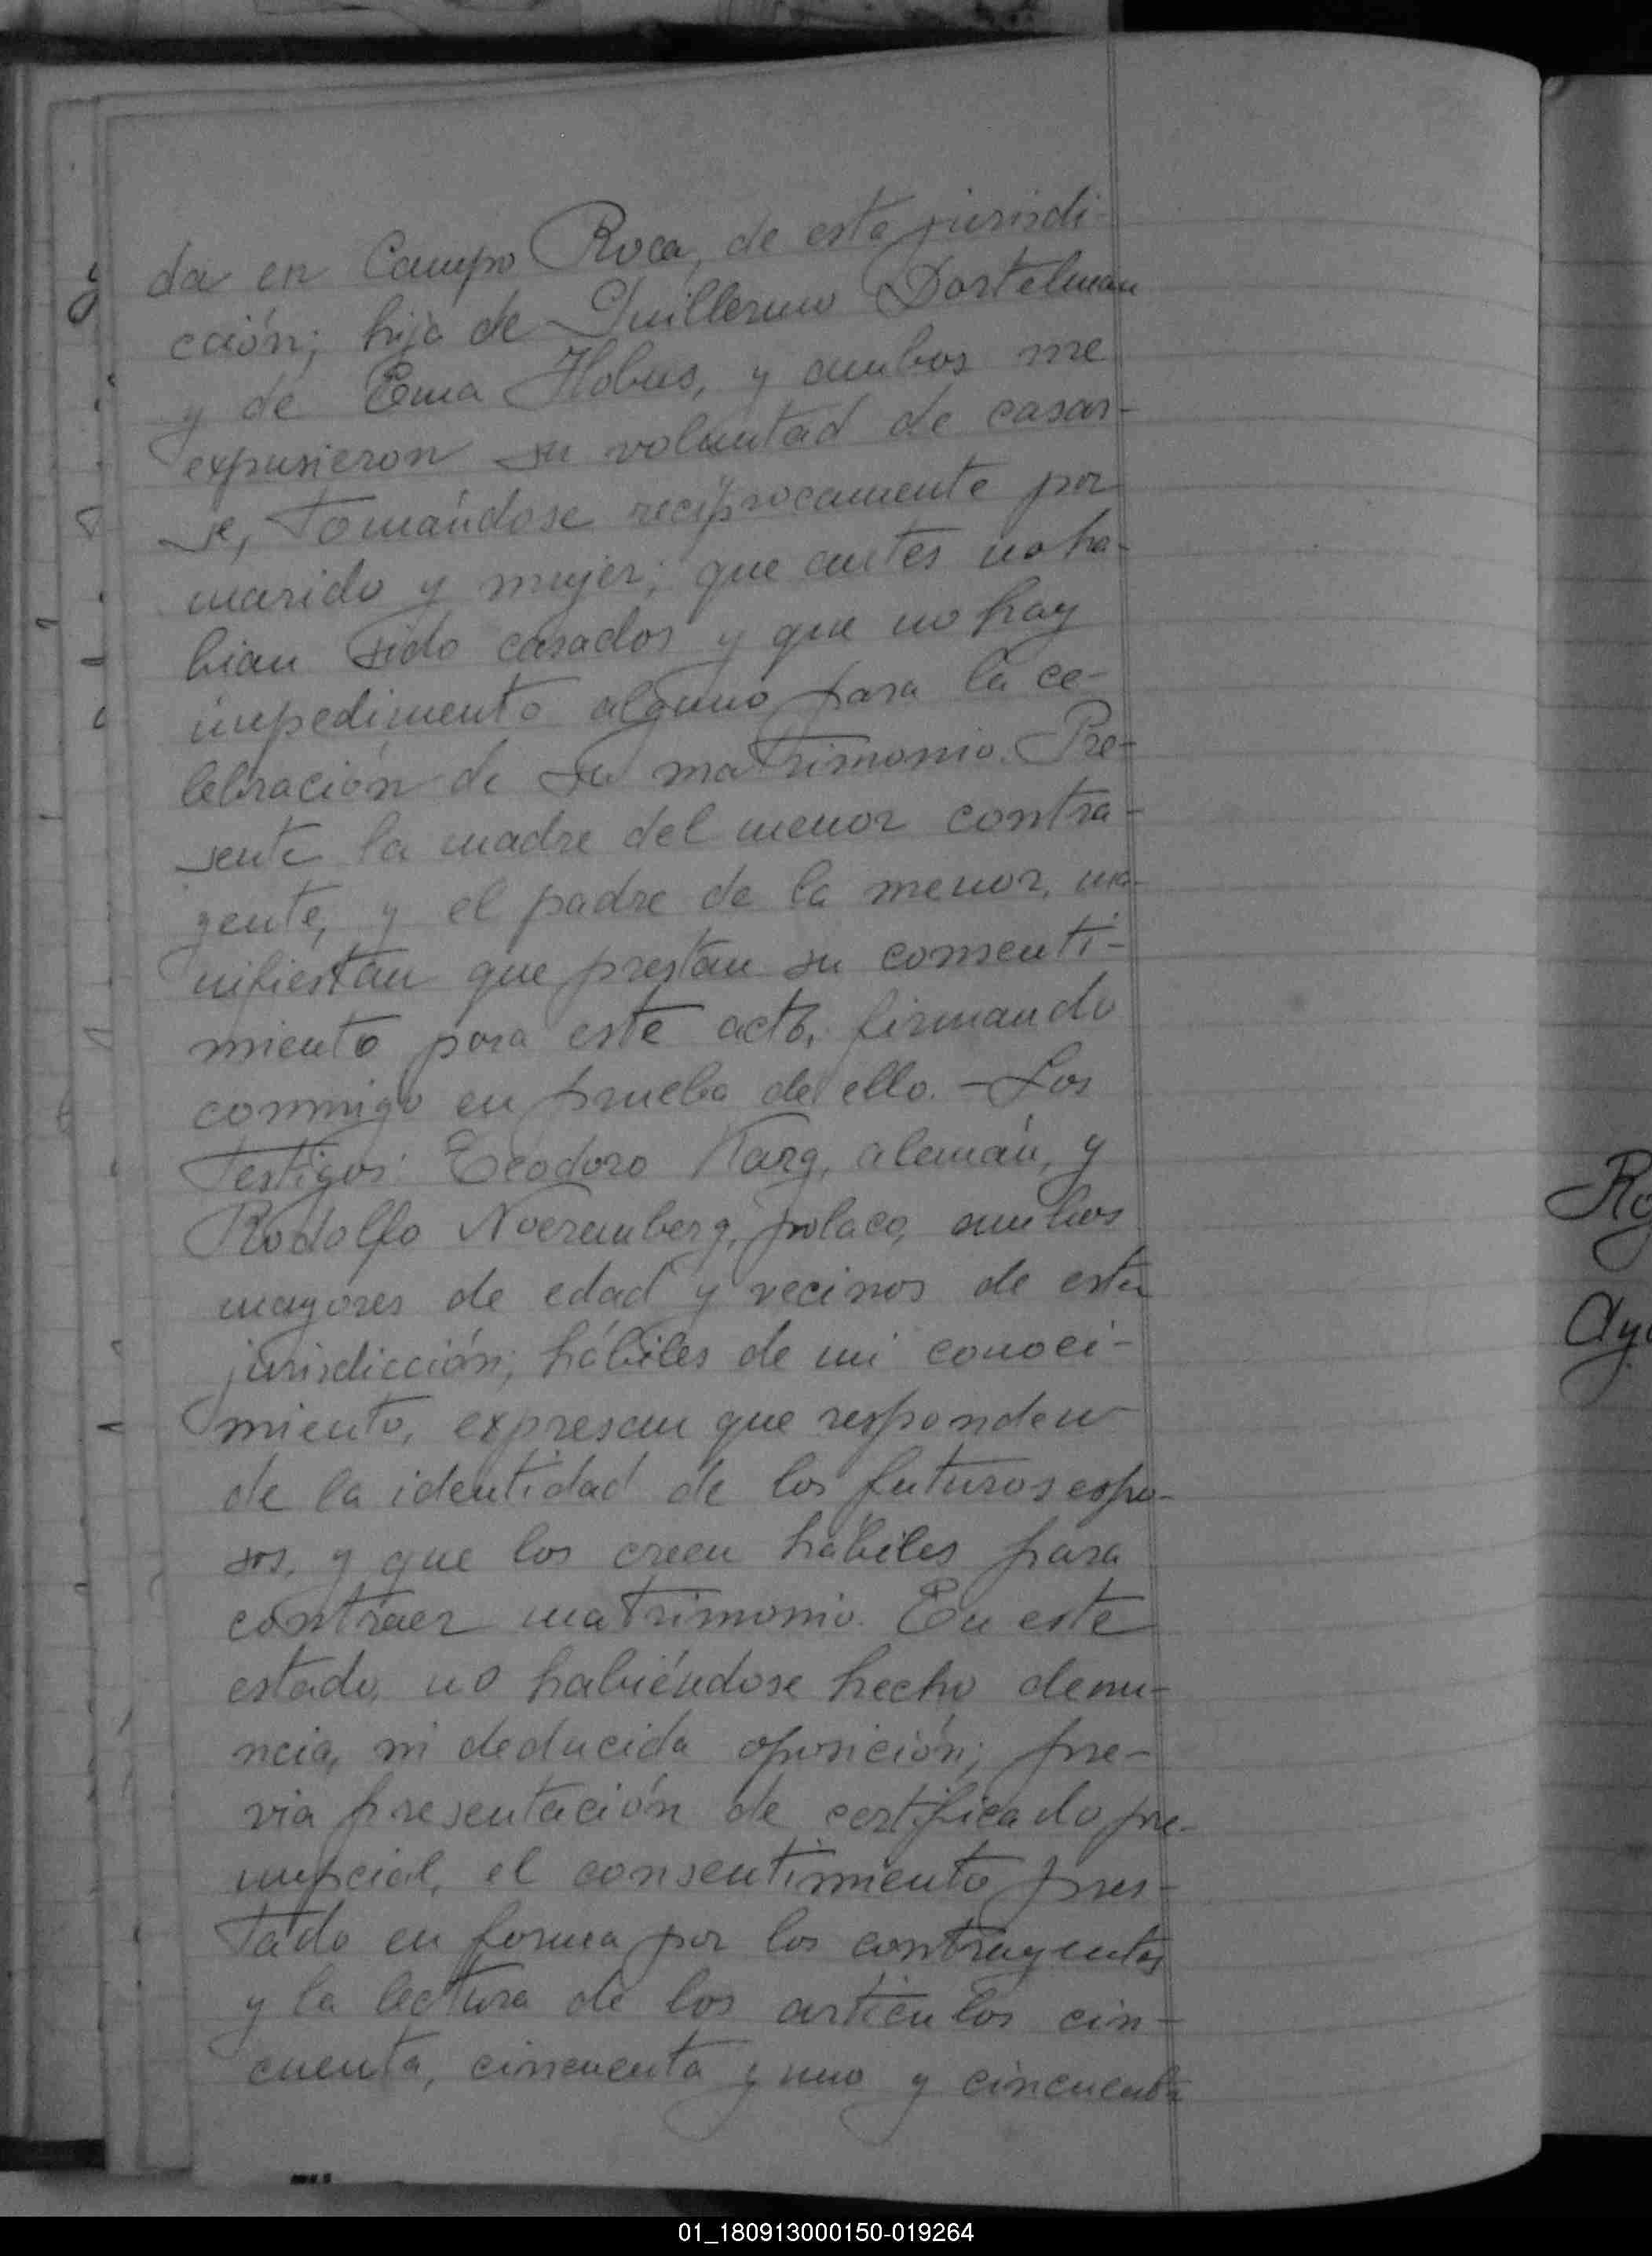 da en Campo Roca, de esta jurisdi-
cción; hija de Guillermo Dortelman
y de Ema Hobus, y ambos me
expusieron su voluntad de casar-
se, tomándose recíprocamente por
marido y mujer; que antes no ha-
bian sido casados y que no hay
impedimento alguno para la ce-
lebración de su matrimonio. Pre-
sente la madre del menor contra-
yente, y el padre de la menor, ma-
nifiestan que prestan su consenti-
miento para este acto, firmando
conmigo en prueba de ello. - Los
testigos: Teodoro Karg, alemán, y
Rodolfo Noeremberg, polaco, ambos
mayores de edad y vecinos de esta
jurisdicción; hábiles de mi conoci-
miento, expresan que responden
de la identidad de los futuros espo-
sos, y que los creen hábiles para
contraer matrimonio. En este
estado, no habiéndose hecho denu-
ncia, ni deducida oposición; pre-
via presentación de certificado pre-
nupcial, el consentimiento pres-
tado en forma por los contrayentes
y la lectura de los artículos cin-
cuenta, cincuenta y uno y cincuenta
Ro
Ay
01_180913000150-019264